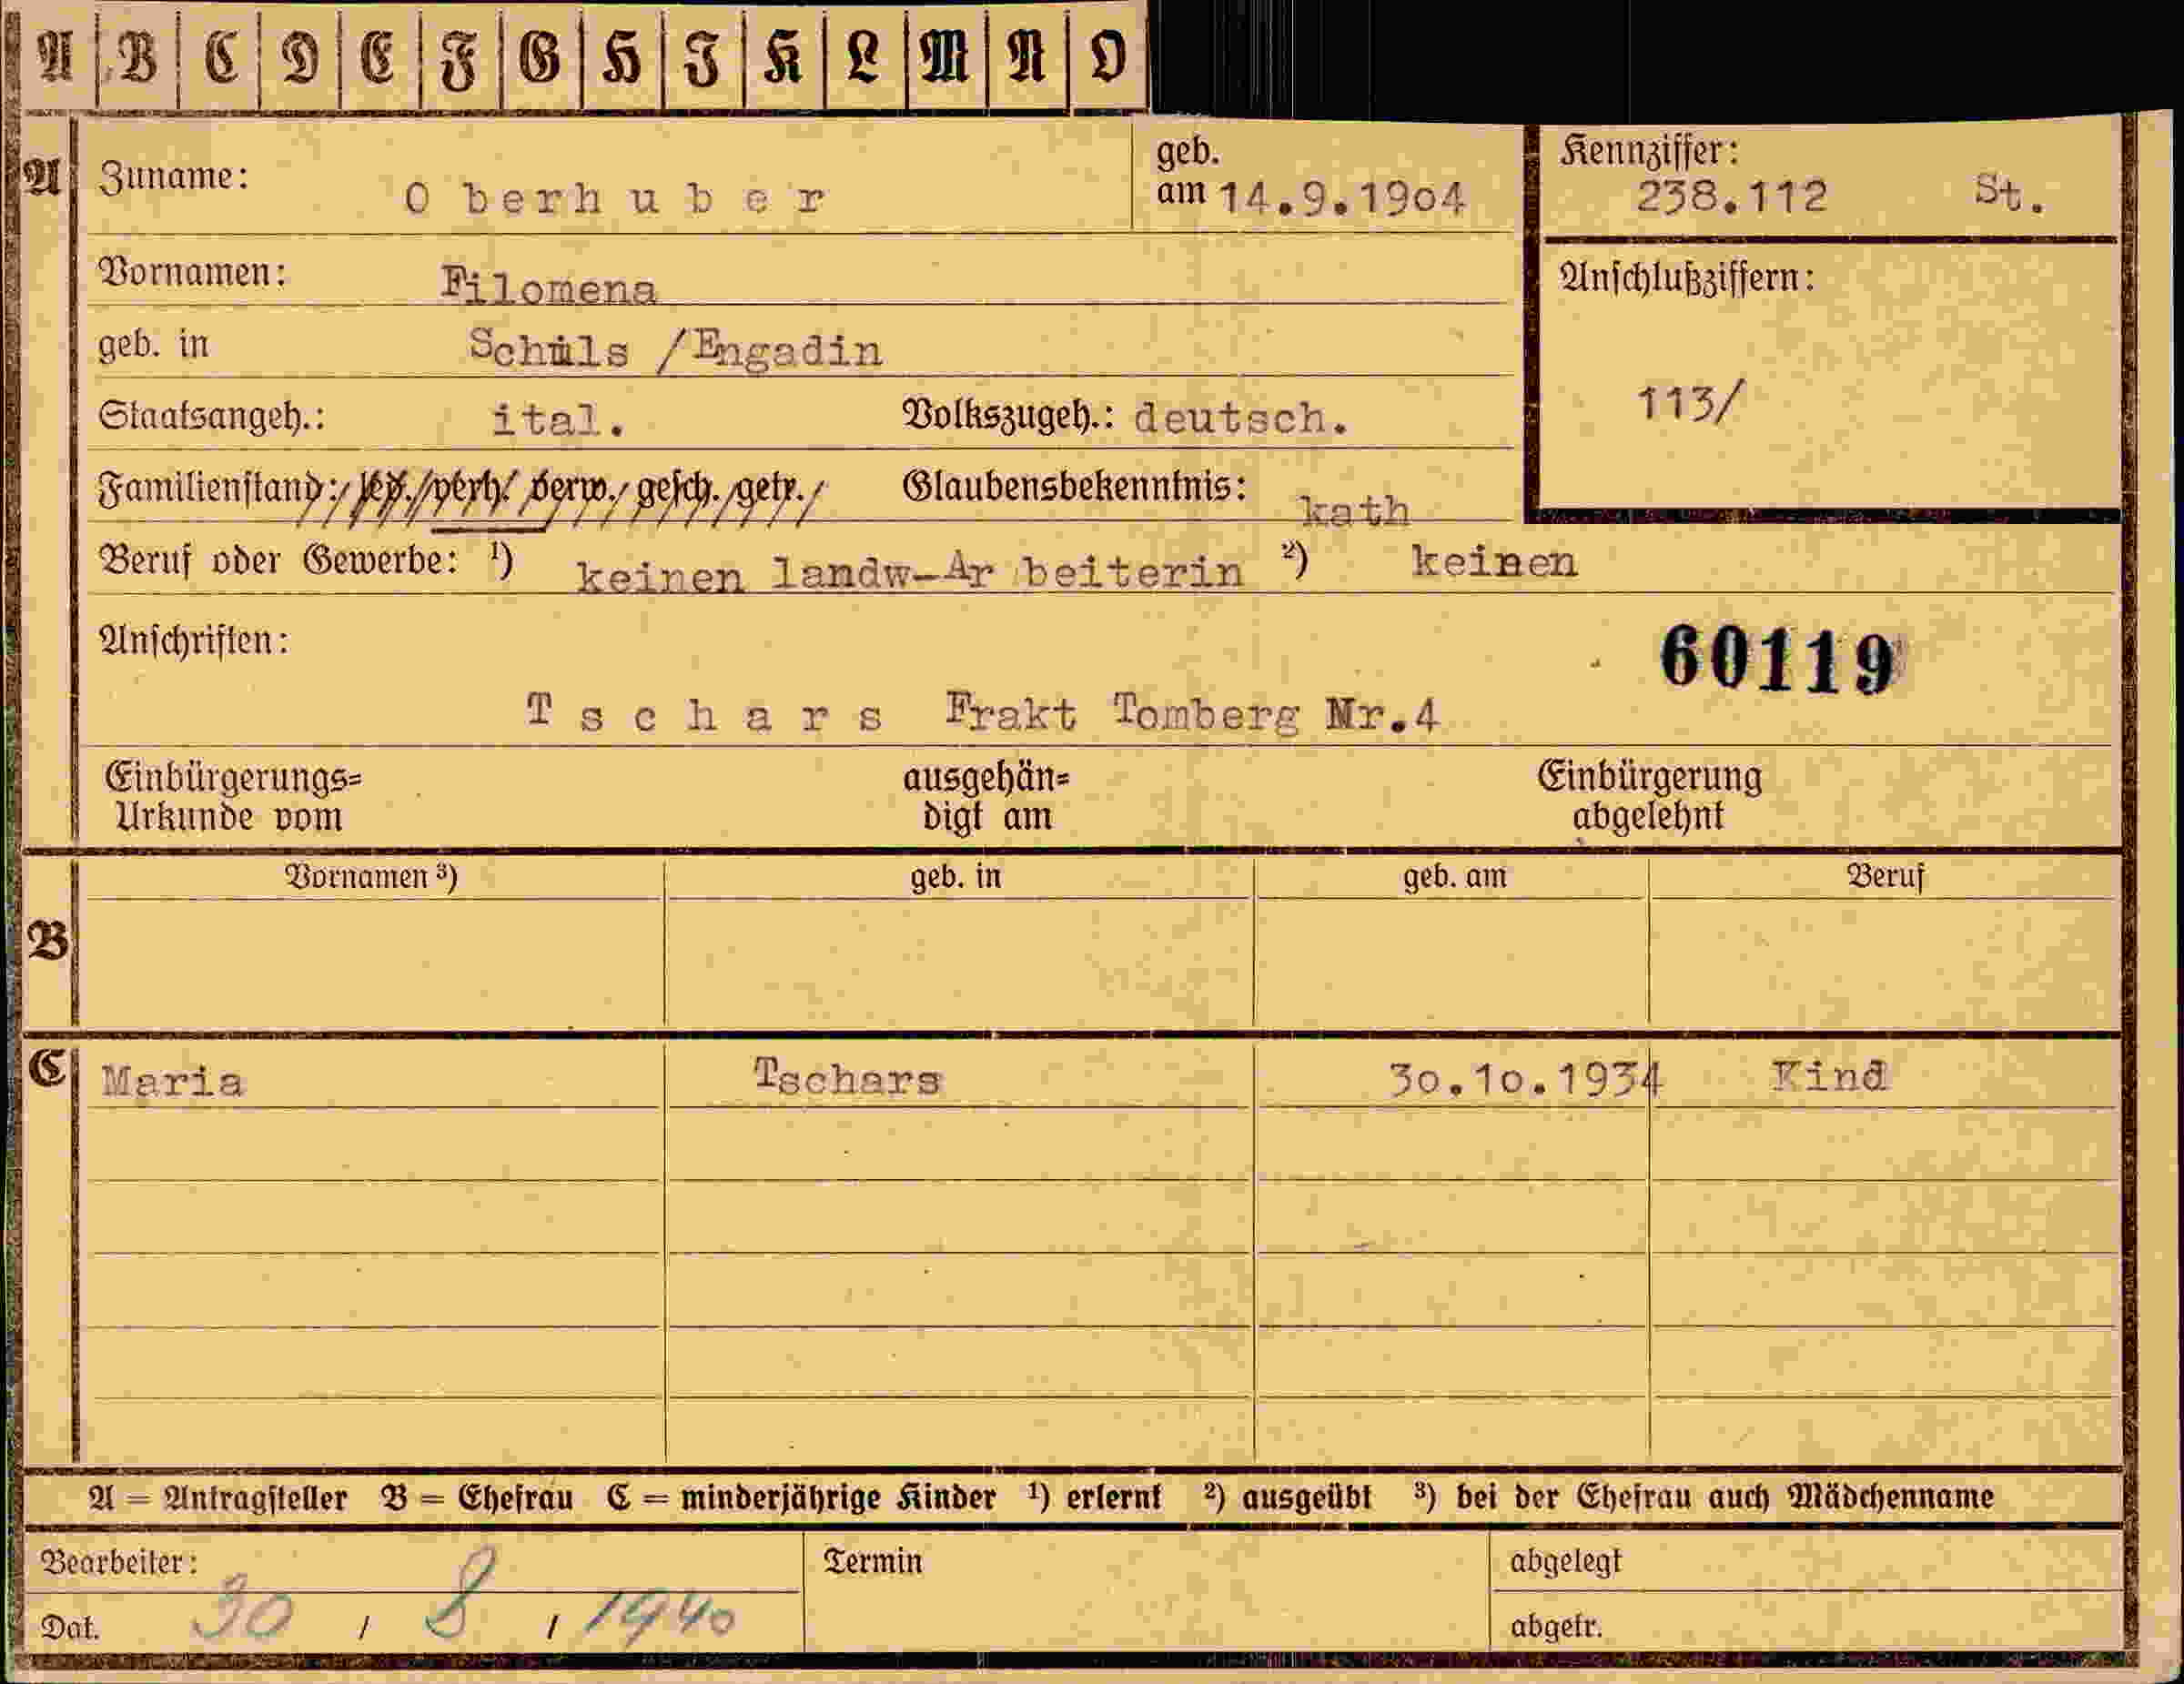 A B C D E F G H I K L M N O
A Zuname: Oberhuber geb. am 14.9.1904 Kennziffer: 238.112 St.
Vornamen: Filomena Anschlußziffern:
geb. in Schuls /Engadin
Staatsangeh.: ital. Volkszugeh.: deutsch. 113/
Familienstand: led./verh./ verw./ gesch./getr./ Glaubensbekenntnis: kath
Beruf oder Gewerbe: ¹) keinen landw-Ar beiterin ²) keinen
Anschriften: 60119
Tschars Frakt Tomberg Nr.4
Einbürgerungs= ausgehän= Einbürgerung
Urkunde vom digt am abgelehnt
Vornamen ³) geb. in geb. am Beruf
B
C Maria Tschars 30.10.1934 Kind
A = Antragsteller B = Ehefrau C = minderjährige Kinder ¹) erlernt ²) ausgeübt ³) bei der Ehefrau auch Mädchenname
Bearbeiter: Termin abgelegt
Dat. 30 / 8 / 1940 abgetr.